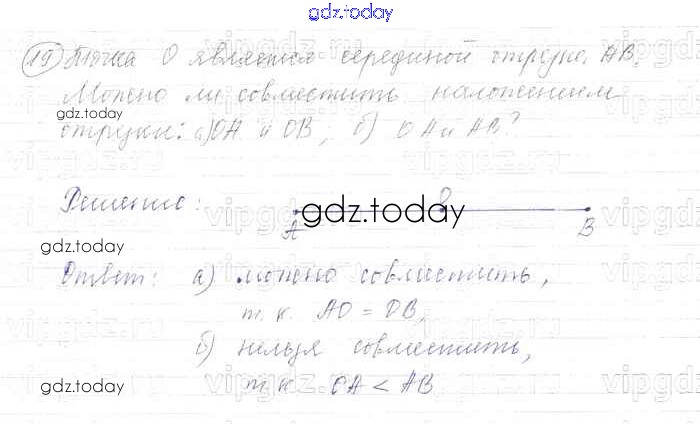 gdz.today
19) Точка О является серединой отрезка АВ.
Можно ли совместить наложением
gdz.today
отрезки: а) ОА и ОВ; б) ОА и АВ?
Решение:
О
gdz.today
А В
gdz.today
Ответ: а) можно совместить,
т. к. АО = ОВ,
б) нельзя совместить,
gdz.today
т. к. ОА < АВ